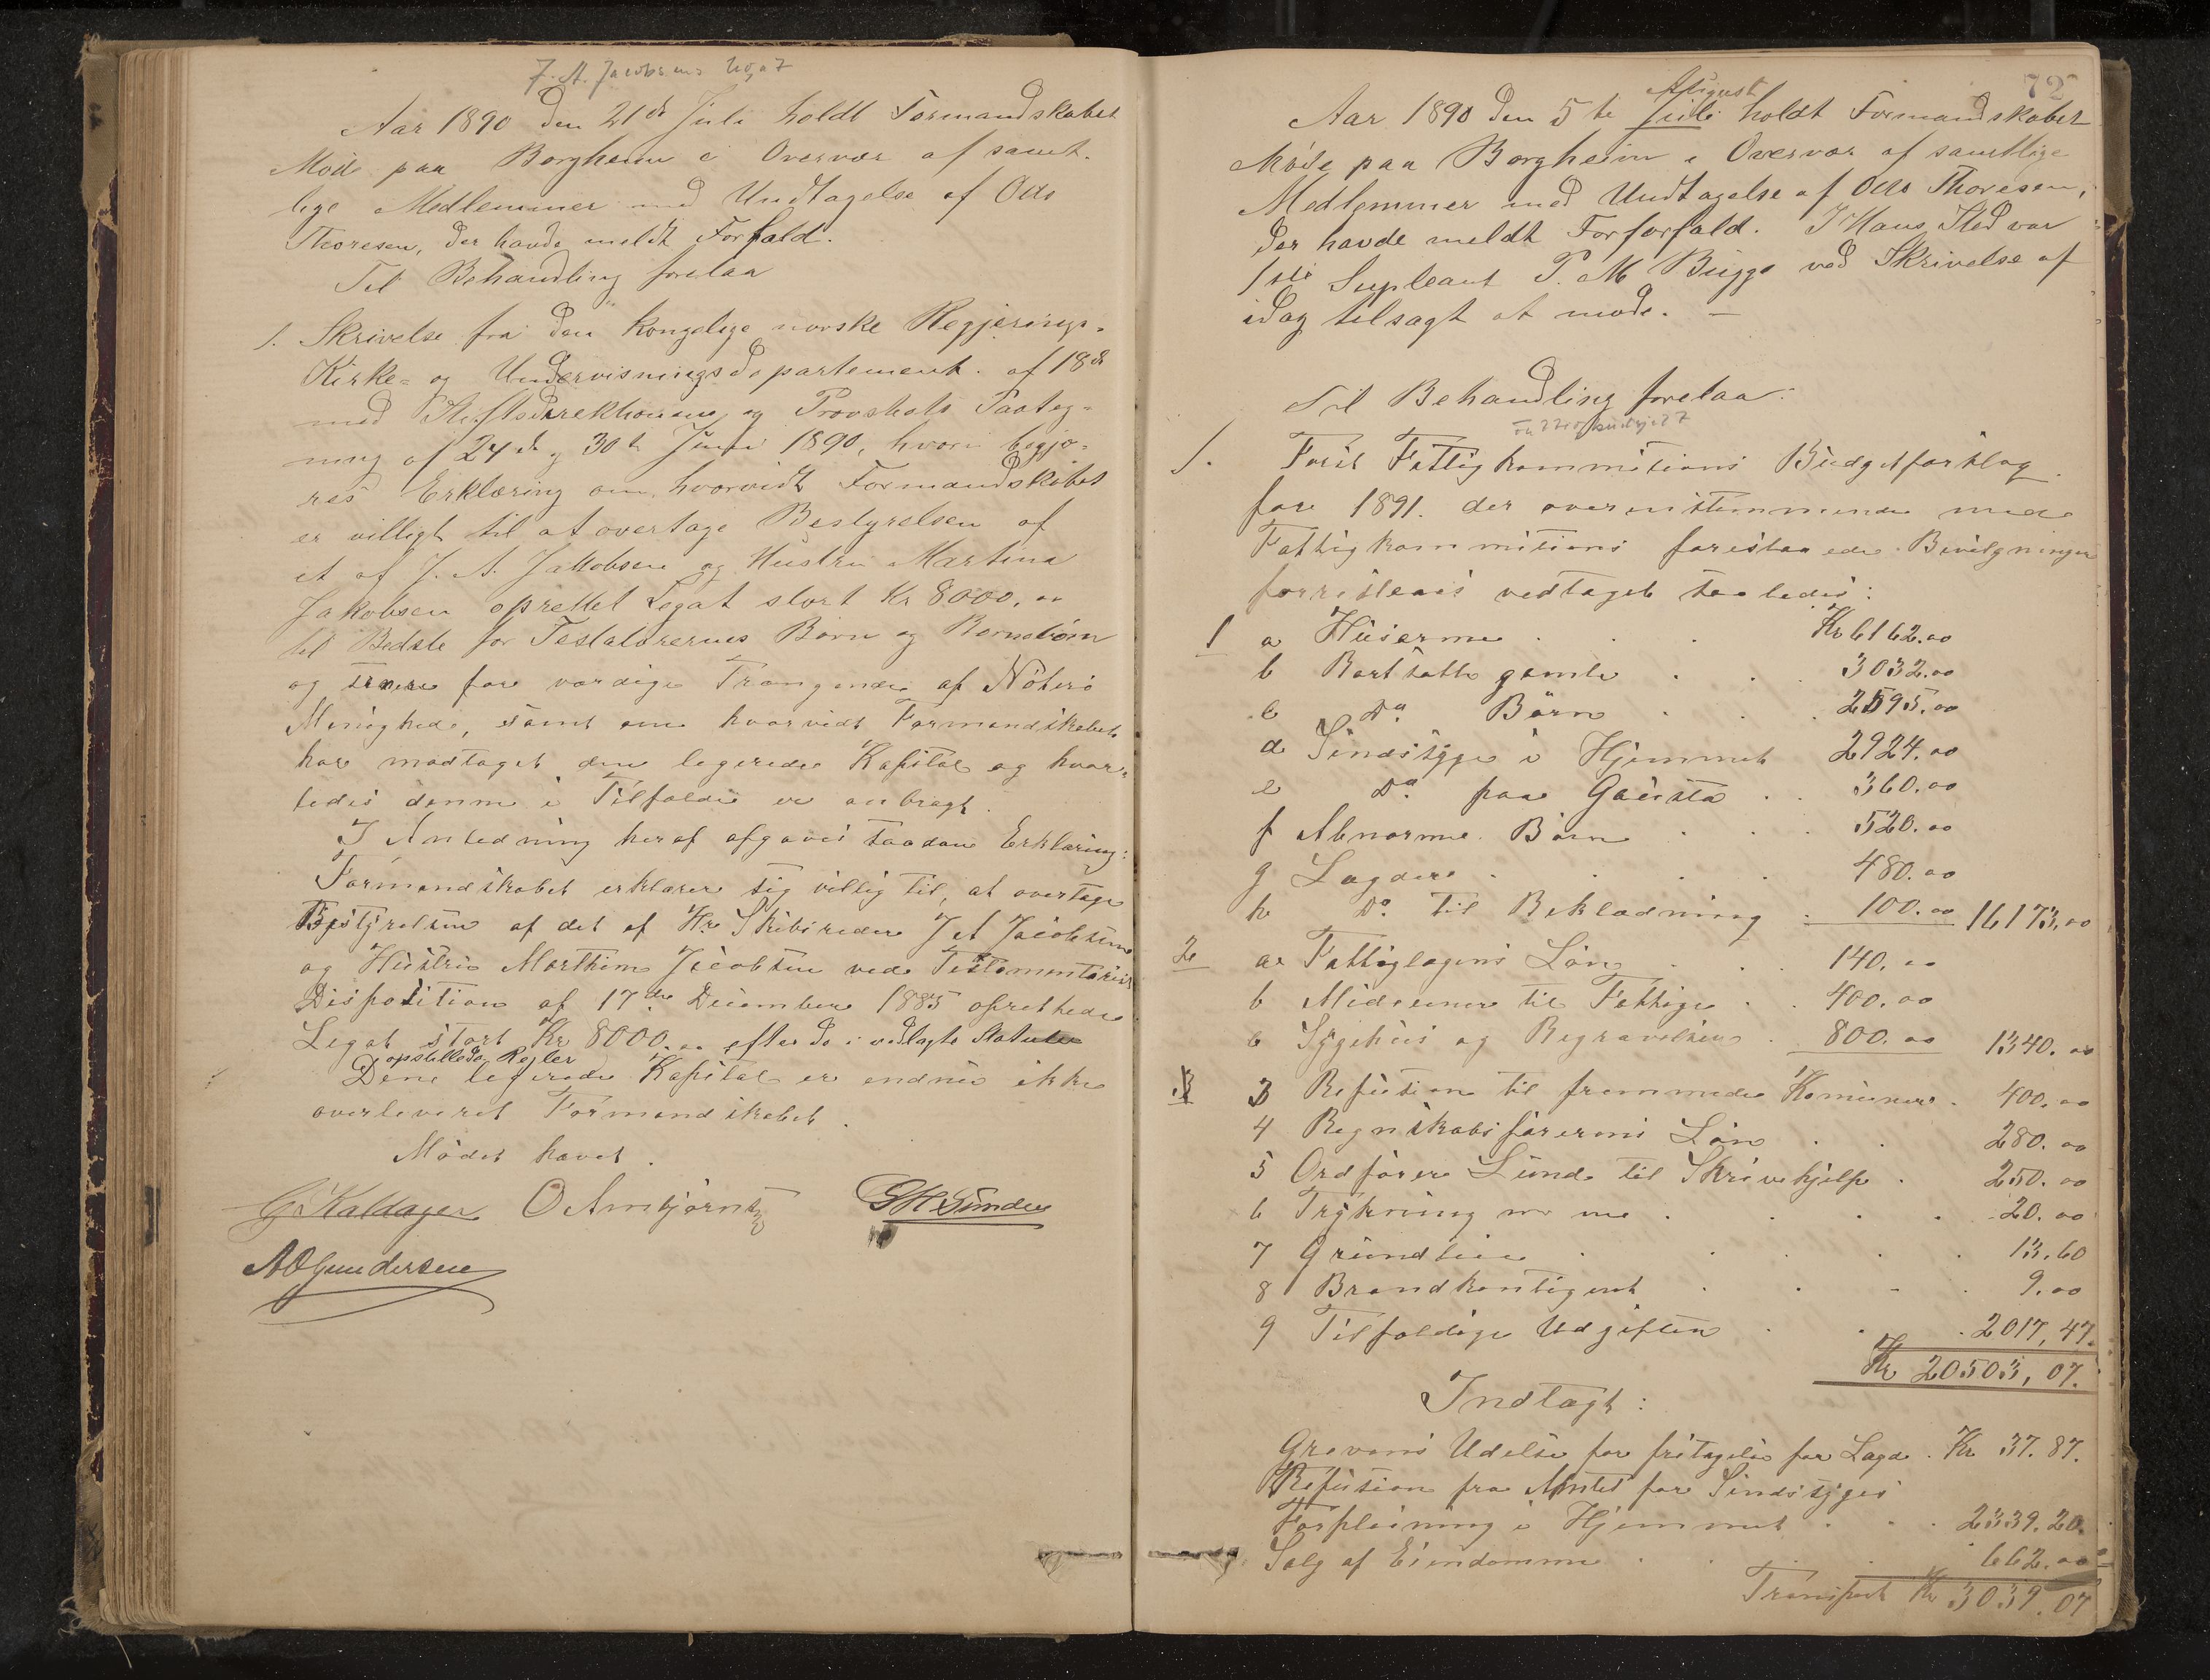 J. A. Jacobsens Legat
Aar 1890 den 21de Juli holdt Formandskabet
Møde paa Borgheim i Overvær af samt-
lige Medlemmer med Undtagelse af Otto
Thoresen, der havde meldt Forfald.
Til Behandling forelaa
1. Skrivelse fra den kongelige norske Regjerings-
Kirke- og Undervisningsdepartement af 18de
med Stiftsdirektionens og Provstets Paateg-
ning af 24de og 30te Juni 1890, hvori begjæ-
res Erklæring om hvorvidt Formandskabet
er villigt til at overtage Bestyrelsen af
et af J. A. Jakobsen og Hustru Martina
Jakobsen oprettet Legat stort Kr 8000.00
til Bedste for Testatorernes Børn og Børnebørn
og senere for værdige Trængende af Nøterø
Menighed, samt om hvorvidt Formandskabet
har modtaget den legerede Kapital og hvor-
ledes denne i Tilfælde er anbragt.
I Anledning heraf afgaves saadan Erklæring:
Formandskabet erklærer sig villig til, at overtage
Bestyrelsen af det af Hr. Skibsreder J A Jacobsen
og Hustru Marthine Jacobsen ved Testamentarisk
Disposition af 17de December 1885 oprettede
Legat stort Kr 8000.00 efter de i vedlagte Statuter
opstillede Regler
Den legerede Kapital er endnu ikke
overleveret Formandskabet.
Mødet hævet.
G Kaldager O Ambjørnsen GHSunden
AOGundersen
72
August
Aar 1890 den 5te Juli holdt Formandskabet
Møde paa Borgheim i Overvær af samtlige
Medlemmer med Undtagelse af Otto Thoresen,
der havde meldt Forforfald. I Hans Sted var
1ste Supleant P. M Bugge ved Skrivelse af
idag tilsagt at møde. —
Til Behandling forelaa:
1. Forit Fattigkommitions Budgetforslag
for 1891. der overensstemmende med
Fattigkommitions foreslaaede Bevilgninger
forresteois vedtaget saaledes:
1 a Huusarme . . . Kr 6162.00
b Bortsatte gamle . . 3032.00
c Do. Børn . . . 2595.00
d Sindssyge i Hjemmet 2924.00
e Do. paa Gausta . . 360.00
f Abnorme Børn . . . 520.00
g Lægdere . . . . 480.00
h Do. til Beklædning . 100.00 16173,00
2 a Fattiglægens Løn . . . 140.00
b Medeciner til Fattige . . 400.00
c Sygehus og Begravelsen . 800.00 1340.00
3 Refusion til fremmede Komuner . 400.00
4 Regnskabsførerens Løn . . 280.00
5 Ordfører Lunde til Skrivehjelp . 250.00
6 Trykning m m . . . . 20.00
7 Grundleie . . . . 13.60
8 Brandkontigent . . . . 9.00
9 Tilfældige Udgifter . . . 2017,47.
Kr 20503,07.
Indtægt:
Grevens Udelse for fritagelse for Lægd . Kr 37.87.
Refusion fra Amtet for Sindssyges
Forpleining i Hjemmet . . . 2339.20.
Salg af Eiendomme . . . . 662.00
Transport Kr 3039.07